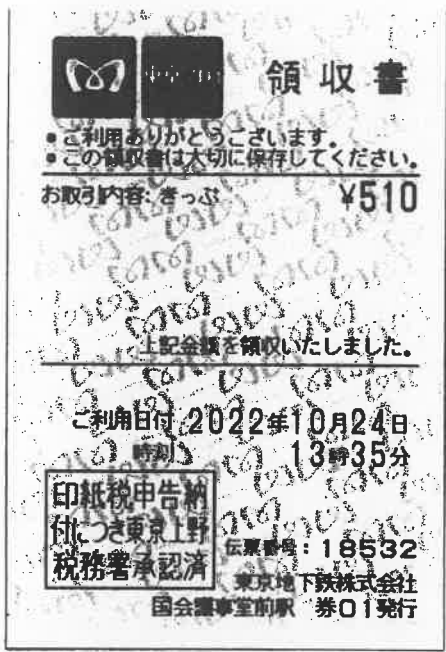 領収書
● ご利用ありがとうございます。
● この領収書は大切に保存してください。
お取引内容: きっぷ ¥510
上記金額を領収いたしました。
ご利用日付 2022年10月24日
時刻 13時35分
印紙税申告納
付につき東京上野
税務署承認済
伝票番号: 18532
東京地下鉄株式会社
国会議事堂前駅 券01発行